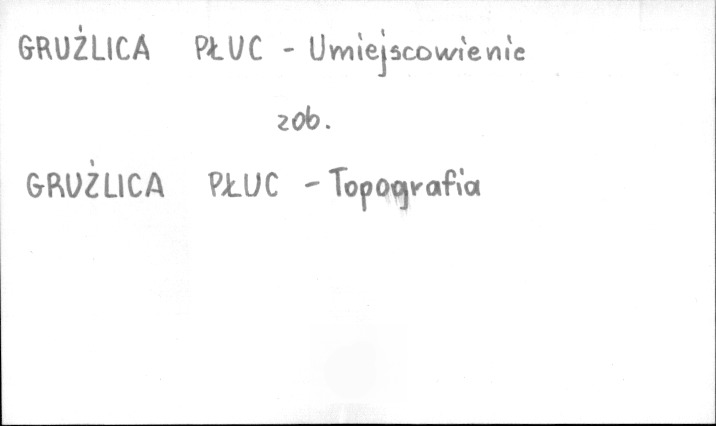 GRUŹLICA PŁUC - Umiejscowienie
zob.
GRUŹLICA PŁUC - Topografia